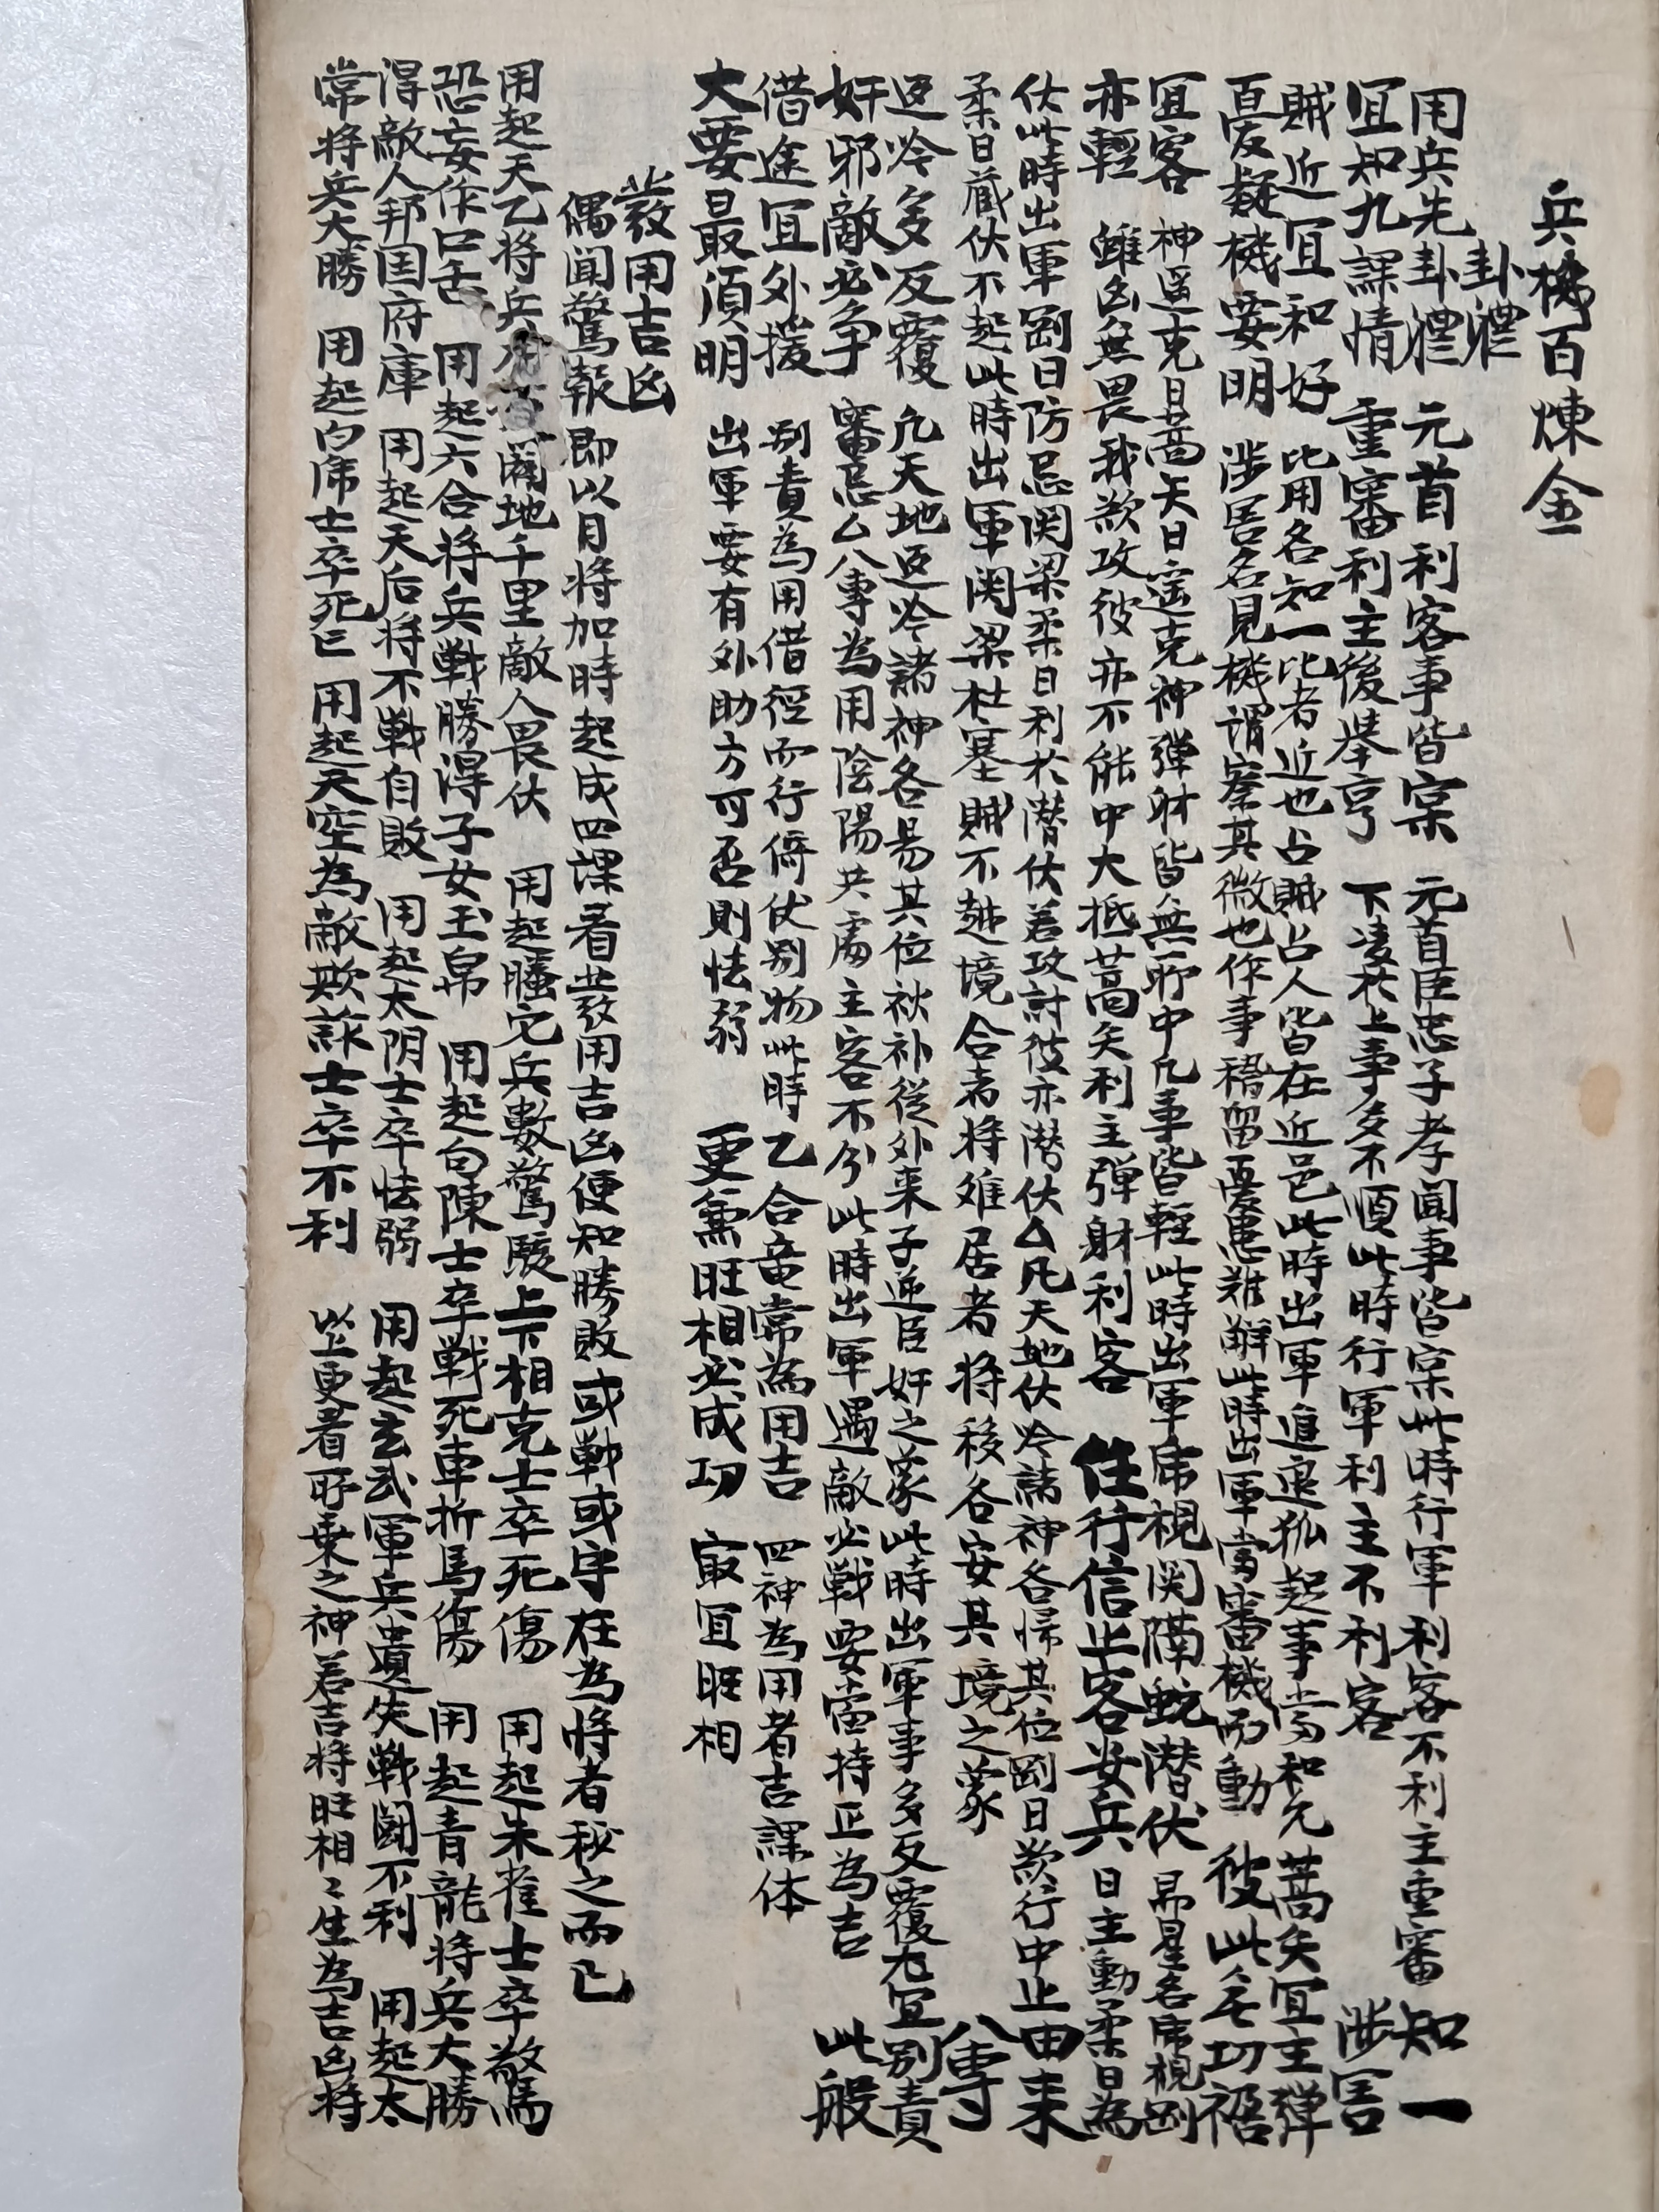 兵機百煉金
卦澧
用兵先卦澧 元首利客事皆宲 元首臣忠子孝聞事皆宲此時行軍利客不利主重審 知一
宜知九課情 重審利主後举亨 下凌於上事多不順此時行軍利主不利客 涉害
賊近宜和好 比用名知一比者近也占賊占人皆在近邑此時出軍進退狐起事當和允 蒿矢宜主弹
疑機要明 涉害名見機謂察其微也作事稽留憂患难觧此時出軍當審機而動 彼此無功
宜客 神遥克日蒿矢日遥克神弹射皆無所中凡事皆輕此時出軍虎視関隔蛇潜伏 昴星名虎視剛
亦輕 雖凶無畏我欲攻彼亦不能中大抵蒿矢利主弹射利客 任行信止客安兵 日主動柔日為
伏此時出軍剛日防忌関梁柔日利於潜伏若攻討彼亦潜伏厶凡天地伏吟諸神各帰其位剛日欲行中止由来
柔日蔵伏不起此時出軍関梁杜塞賊不越境合者将难居者将移各安其境之蒙 八專
返吟多反覆 凡天地返吟諸神各易其位秋补從外来子逆臣奸之蒙此時出軍事多反覆尤宜别責
奸邪敵必争 審忌厶八專為用陰陽共處主客不分此時出軍遇敵必戰要當持正為吉 此般
借途宜外援 别責為用借徑而行倚伏别物此時 乙合竜常為用吉 四神為用者吉課体
大要最須明 出軍要有外助方可否則怯弱 更兼旺相必成功 㝡宜旺相
發用吉凶
偶聞驚報即以月将加時起成四課看發用吉凶便知勝敗或勒或守在為将者秘之而已
用起天乙将兵闢地千里敵人畏伏 用起螣它兵數驚駭上下相克士卒死傷 用起朱雀士卒驚
恐妄作口舌 用起六合将兵戰勝得子女玉帛 用起勾陳士卒戰死車折馬傷 用起青龍将兵大勝
得敵人邦国府庫 用起天后将不戰自敗 用起太阴士卒怯弱 用起玄武軍兵遺失戰闘不利 用起太
常将兵大勝 用起白虎士卒死亡 用起天空為敵欺詐士卒不利 以上更看所乗之神若吉将旺相〻生為吉凶将